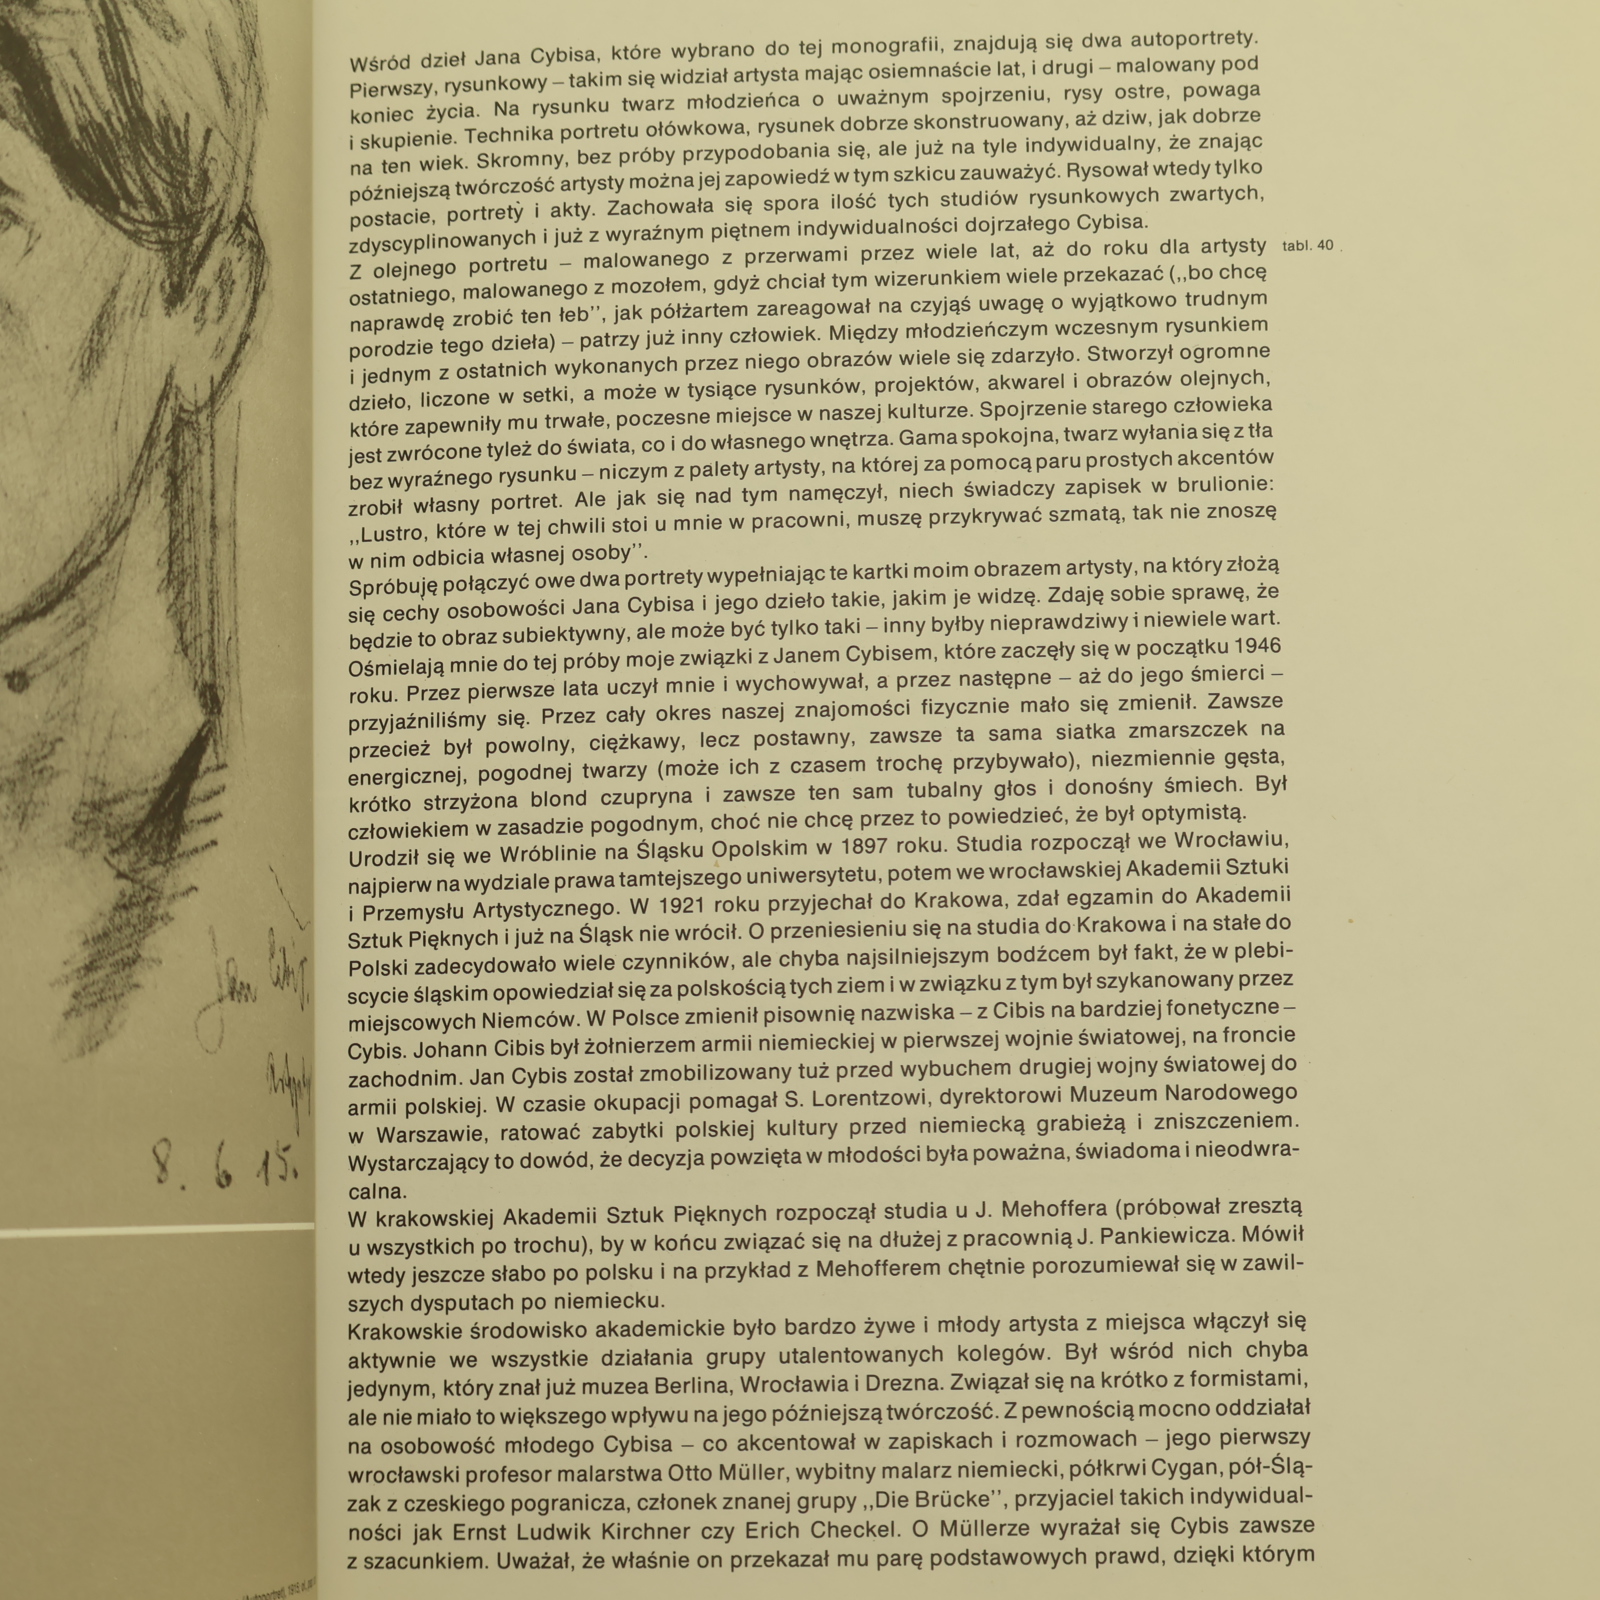 Wśród dzieł Jana Cybisa, które wybrano do tej monografii, znajdują się dwa autoportrety.
Pierwszy, rysunkowy – takim się widział artysta mając osiemnaście lat, i drugi – malowany pod
koniec życia. Na rysunku twarz młodzieńca o uważnym spojrzeniu, rysy ostre, powaga
i skupienie. Technika portretu ołówkowa, rysunek dobrze skonstruowany, aż dziw, jak dobrze
na ten wiek. Skromny, bez próby przypodobania się, ale już na tyle indywidualny, że znając
późniejszą twórczość artysty można jej zapowiedź w tym szkicu zauważyć. Rysował wtedy tylko
postacie, portrety i akty. Zachowała się spora ilość tych studiów rysunkowych zwartych,
zdyscyplinowanych i już z wyraźnym piętnem indywidualności dojrzałego Cybisa.
Z olejnego portretu – malowanego z przerwami przez wiele lat, aż do roku dla artysty tabl. 40
ostatniego, malowanego z mozołem, gdyż chciał tym wizerunkiem wiele przekazać (,,bo chcę
naprawdę zrobić ten łeb'', jak półżartem zareagował na czyjąś uwagę o wyjątkowo trudnym
porodzie tego dzieła) – patrzy już inny człowiek. Między młodzieńczym wczesnym rysunkiem
i jednym z ostatnich wykonanych przez niego obrazów wiele się zdarzyło. Stworzył ogromne
dzieło, liczone w setki, a może w tysiące rysunków, projektów, akwarel i obrazów olejnych,
które zapewniły mu trwałe, poczesne miejsce w naszej kulturze. Spojrzenie starego człowieka
jest zwrócone tyleż do świata, co i do własnego wnętrza. Gama spokojna, twarz wyłania się z tła
bez wyraźnego rysunku – niczym z palety artysty, na której za pomocą paru prostych akcentów
zrobił własny portret. Ale jak się nad tym namęczył, niech świadczy zapisek w brulionie:
,,Lustro, które w tej chwili stoi u mnie w pracowni, muszę przykrywać szmatą, tak nie znoszę
w nim odbicia własnej osoby''.
Spróbuję połączyć owe dwa portrety wypełniając te kartki moim obrazem artysty, na który złożą
się cechy osobowości Jana Cybisa i jego dzieło takie, jakim je widzę. Zdaję sobie sprawę, że
będzie to obraz subiektywny, ale może być tylko taki – inny byłby nieprawdziwy i niewiele wart.
Ośmielają mnie do tej próby moje związki z Janem Cybisem, które zaczęły się w początku 1946
roku. Przez pierwsze lata uczył mnie i wychowywał, a przez następne – aż do jego śmierci –
przyjaźniliśmy się. Przez cały okres naszej znajomości fizycznie mało się zmienił. Zawsze
przecież był powolny, ciężkawy, lecz postawny, zawsze ta sama siatka zmarszczek na
energicznej, pogodnej twarzy (może ich z czasem trochę przybywało), niezmiennie gęsta,
krótko strzyżona blond czupryna i zawsze ten sam tubalny głos i donośny śmiech. Był
człowiekiem w zasadzie pogodnym, choć nie chcę przez to powiedzieć, że był optymistą.
Urodził się we Wróblinie na Śląsku Opolskim w 1897 roku. Studia rozpoczął we Wrocławiu,
najpierw na wydziale prawa tamtejszego uniwersytetu, potem we wrocławskiej Akademii Sztuki
i Przemysłu Artystycznego. W 1921 roku przyjechał do Krakowa, zdał egzamin do Akademii
Sztuk Pięknych i już na Śląsk nie wrócił. O przeniesieniu się na studia do Krakowa i na stałe do
Polski zadecydowało wiele czynników, ale chyba najsilniejszym bodźcem był fakt, że w plebi-
scycie śląskim opowiedział się za polskością tych ziem i w związku z tym był szykanowany przez
miejscowych Niemców. W Polsce zmienił pisownię nazwiska – z Cibis na bardziej fonetyczne –
Cybis. Johann Cibis był żołnierzem armii niemieckiej w pierwszej wojnie światowej, na froncie
zachodnim. Jan Cybis został zmobilizowany tuż przed wybuchem drugiej wojny światowej do
armii polskiej. W czasie okupacji pomagał S. Lorentzowi, dyrektorowi Muzeum Narodowego
w Warszawie, ratować zabytki polskiej kultury przed niemiecką grabieżą i zniszczeniem.
Wystarczający to dowód, że decyzja powzięta w młodości była poważna, świadoma i nieodwra-
calna.
W krakowskiej Akademii Sztuk Pięknych rozpoczął studia u J. Mehoffera (próbował zresztą
u wszystkich po trochu), by w końcu związać się na dłużej z pracownią J. Pankiewicza. Mówił
wtedy jeszcze słabo po polsku i na przykład z Mehofferem chętnie porozumiewał się w zawil-
szych dysputach po niemiecku.
Krakowskie środowisko akademickie było bardzo żywe i młody artysta z miejsca włączył się
aktywnie we wszystkie działania grupy utalentowanych kolegów. Był wśród nich chyba
jedynym, który znał już muzea Berlina, Wrocławia i Drezna. Związał się na krótko z formistami,
ale nie miało to większego wpływu na jego późniejszą twórczość. Z pewnością mocno oddziałał
na osobowość młodego Cybisa – co akcentował w zapiskach i rozmowach – jego pierwszy
wrocławski profesor malarstwa Otto Müller, wybitny malarz niemiecki, półkrwi Cygan, pół-Ślą-
zak z czeskiego pogranicza, członek znanej grupy ,,Die Brücke'', przyjaciel takich indywidual-
ności jak Ernst Ludwik Kirchner czy Erich Checkel. O Müllerze wyrażał się Cybis zawsze
z szacunkiem. Uważał, że właśnie on przekazał mu parę podstawowych prawd, dzięki którym
Jan Cibis.
8. 6 15.